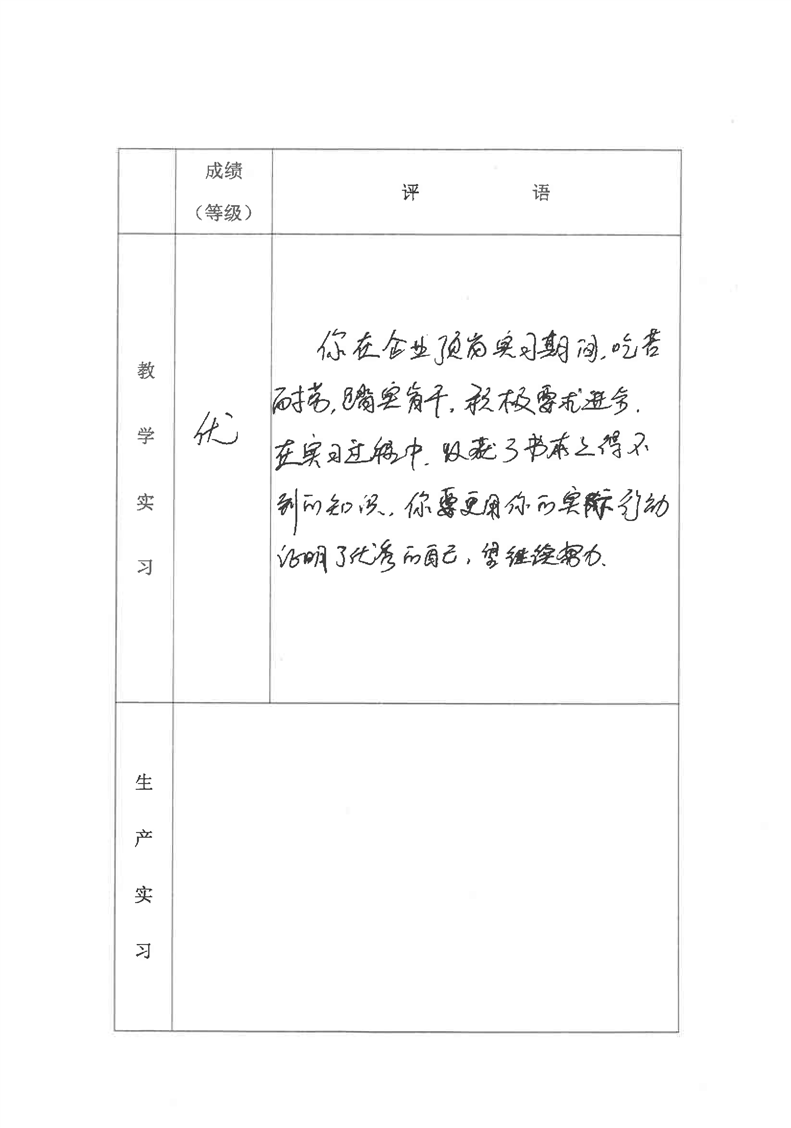 成绩
（等级）
评 语
教学实习
优
你在企业顶岗实习期间，吃苦
耐劳，踏实肯干，积极要求进步．
在实习过程中．收获了书本上得不
到的知识．你要更用你的实际行动
证明了优秀的自己，望继续努力．
生产实习